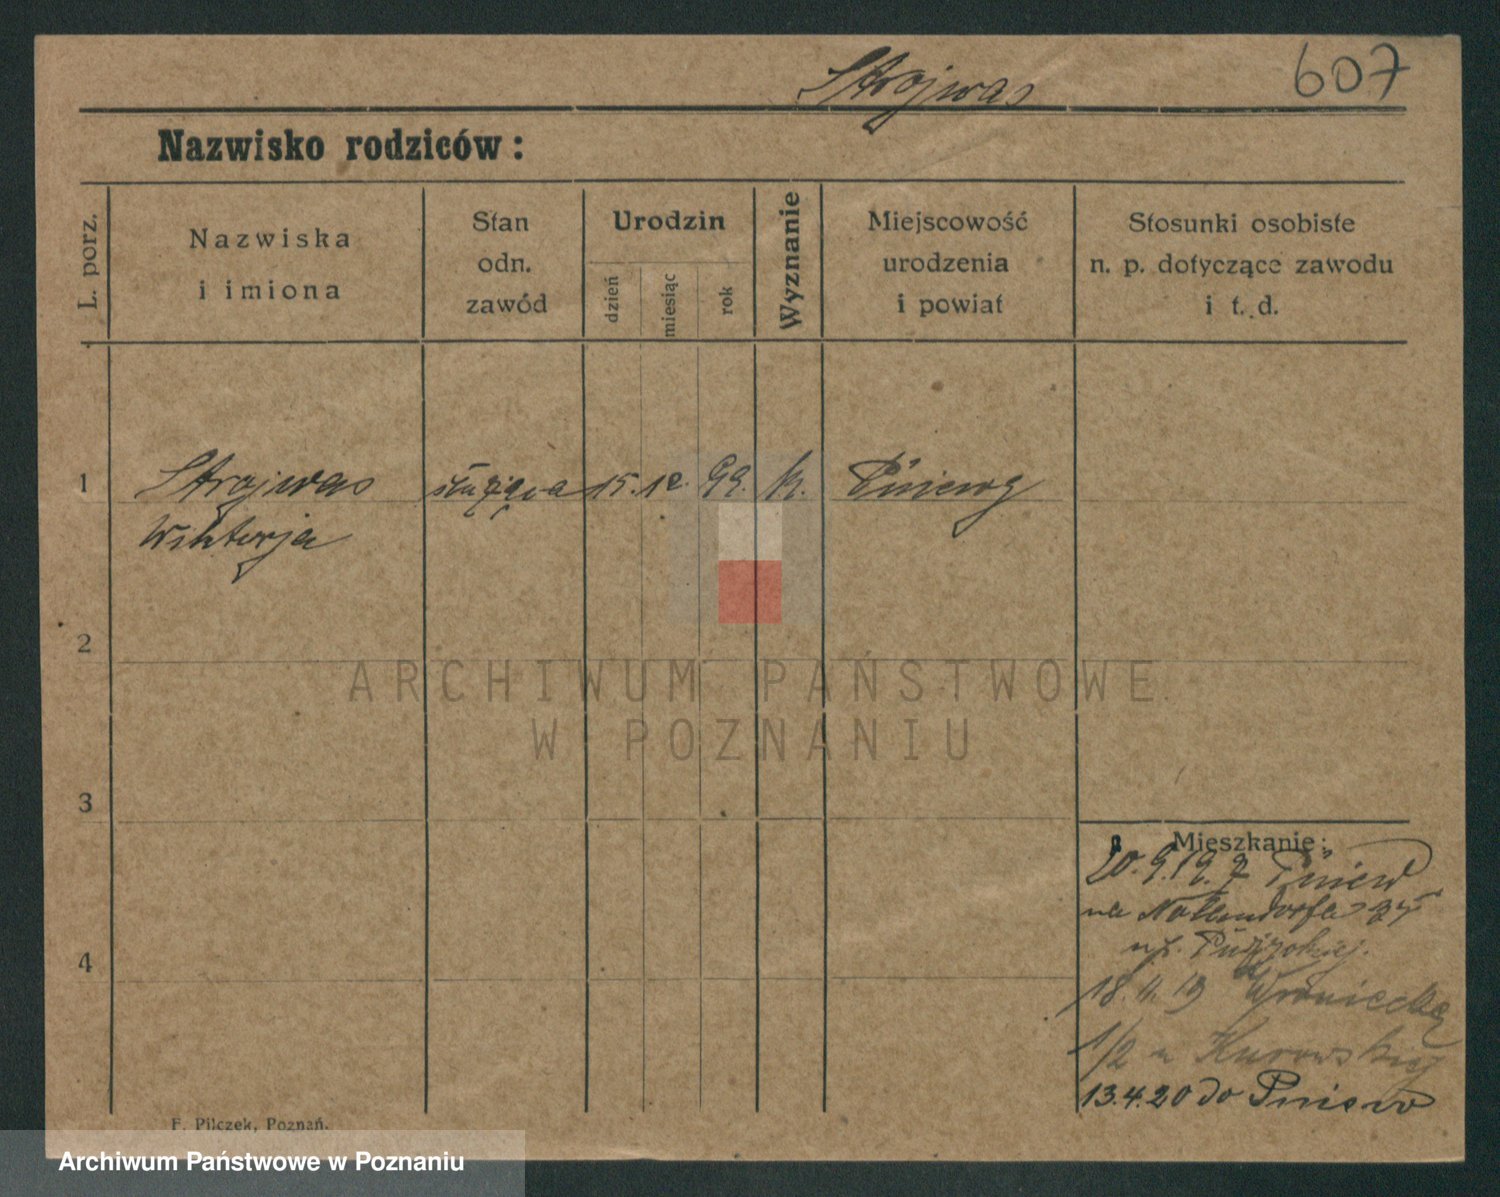 607
Strojwas
Nazwisko rodziców:
L. porz.
Nazwiska
i imiona
Stan
odn.
zawód
Urodzin
dzień
miesiąc
rok
Wyznanie
Miejscowość
urodzenia
i powiat
Stosunki osobiste
n. p. dotyczące zawodu
i t. d.
1
Strojwas służąca 15. 12. 99. k. Pniewy
Wiktorja
2
ARCHIWUM PAŃSTWOWE
W POZNANIU
3
Mieszkanie:
20.9.19. z Pniew
na Nollendorfa 35
4
18.11.19 Wroniecką
1/2 u Kurowskiej
13.4.20 do Pniew
F. Pilczek, Poznań.
Archiwum Państwowe w Poznaniu